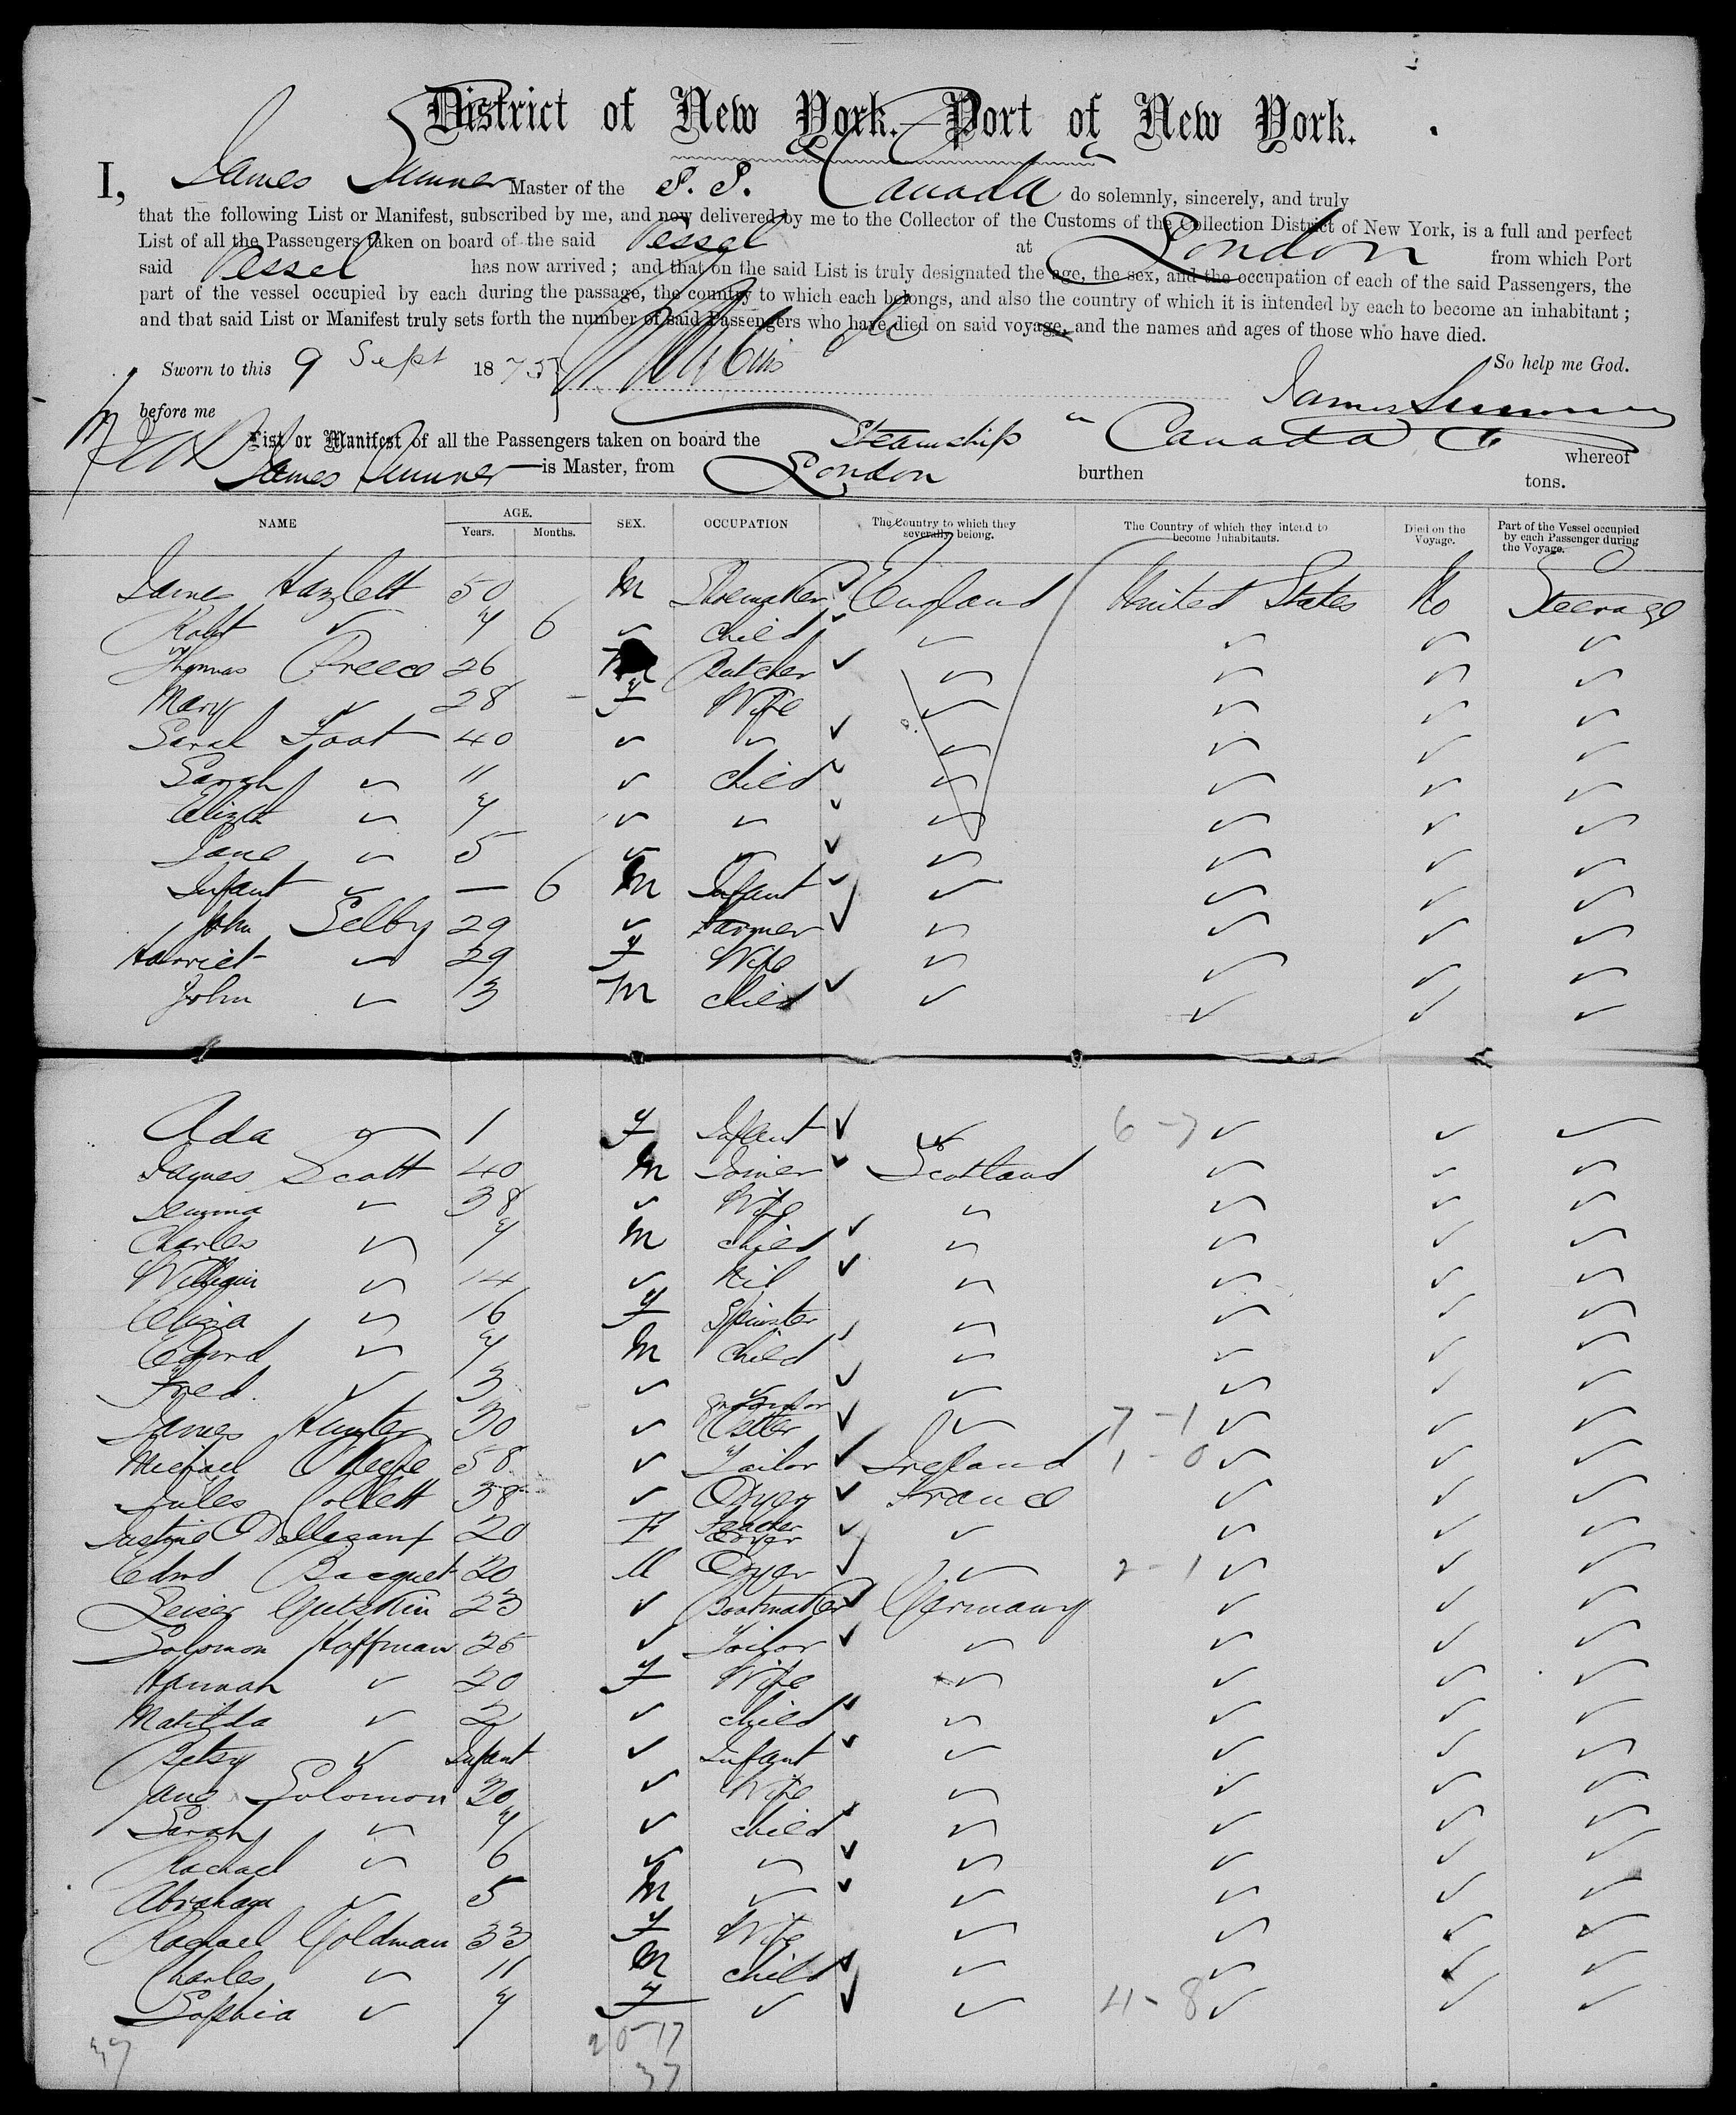 District of New York.—Port of New York.
I, James Sumner Master of the S. S. Canada do solemnly, sincerely, and truly
that the following List or Manifest, subscribed by me, and now delivered by me to the Collector of the Customs of the Collection District of New York, is a full and perfect
List of all the Passengers taken on board of the said Vessel at London from which Port
said Vessel has now arrived; and that on the said List is truly designated the age, the sex, and the occupation of each of the said Passengers, the
part of the vessel occupied by each during the passage, the country to which each belongs, and also the country of which it is intended by each to become an inhabitant;
and that said List or Manifest truly sets forth the number of said Passengers who have died on said voyage, and the names and ages of those who have died.
Sworn to this 9 Sept 1875 So help me God.
before me James Sumner
List or Manifest of all the Passengers taken on board the Steamship Canada whereof
James Sumner is Master, from London burthen tons.
NAME AGE. Years. Months. SEX. OCCUPATION The Country to which they severally belong. The Country of which they intend to become Inhabitants. Died on the Voyage. Part of the Vessel occupied by each Passenger during the Voyage.
James Hazlett 50 M Shoemaker England United States No Steerage
Robt 7 6 Child
Thomas Preece 26 M Butcher
Mary 28 F Wife
Sarah Foot 40
Sarah 11 Child
Eliza 7
Jane 5
Infant — 6 M Infant
John Selby 29 Farmer
Harriet 29 F Wife
John 3 M Child
Ada 1 F Infant 6-7
James Scott 40 M Joiner Scotland
Jemima 38 Wife
Charles 7 M Child
William 14 Nil
Eliza 16 F Spinster
Edwrd 7 M Child
Fred. 3
James Hunter 30 7-1
Michael O'Keefe 58 Tailor Ireland 1-0
Jules Collett 38 Dyer France
Justine 20 F Feather Dyer
Edmd Bacquet 20 M Dyer 2-1
Leiser Gutskin 23 Bootmaker Germany
Solomon Hoffman 25 Tailor
Hannah 20 F Wife
Matilda 2 Child
Betsy Infant Infant
Jane Solomon 30 Wife
Sarah 7 Child
Rachael 6
Abraham 5 M
Rachael Goldman 33 F Wife
Charles 11 M Child
Sophia 7 F 4-8
37 20-17
37